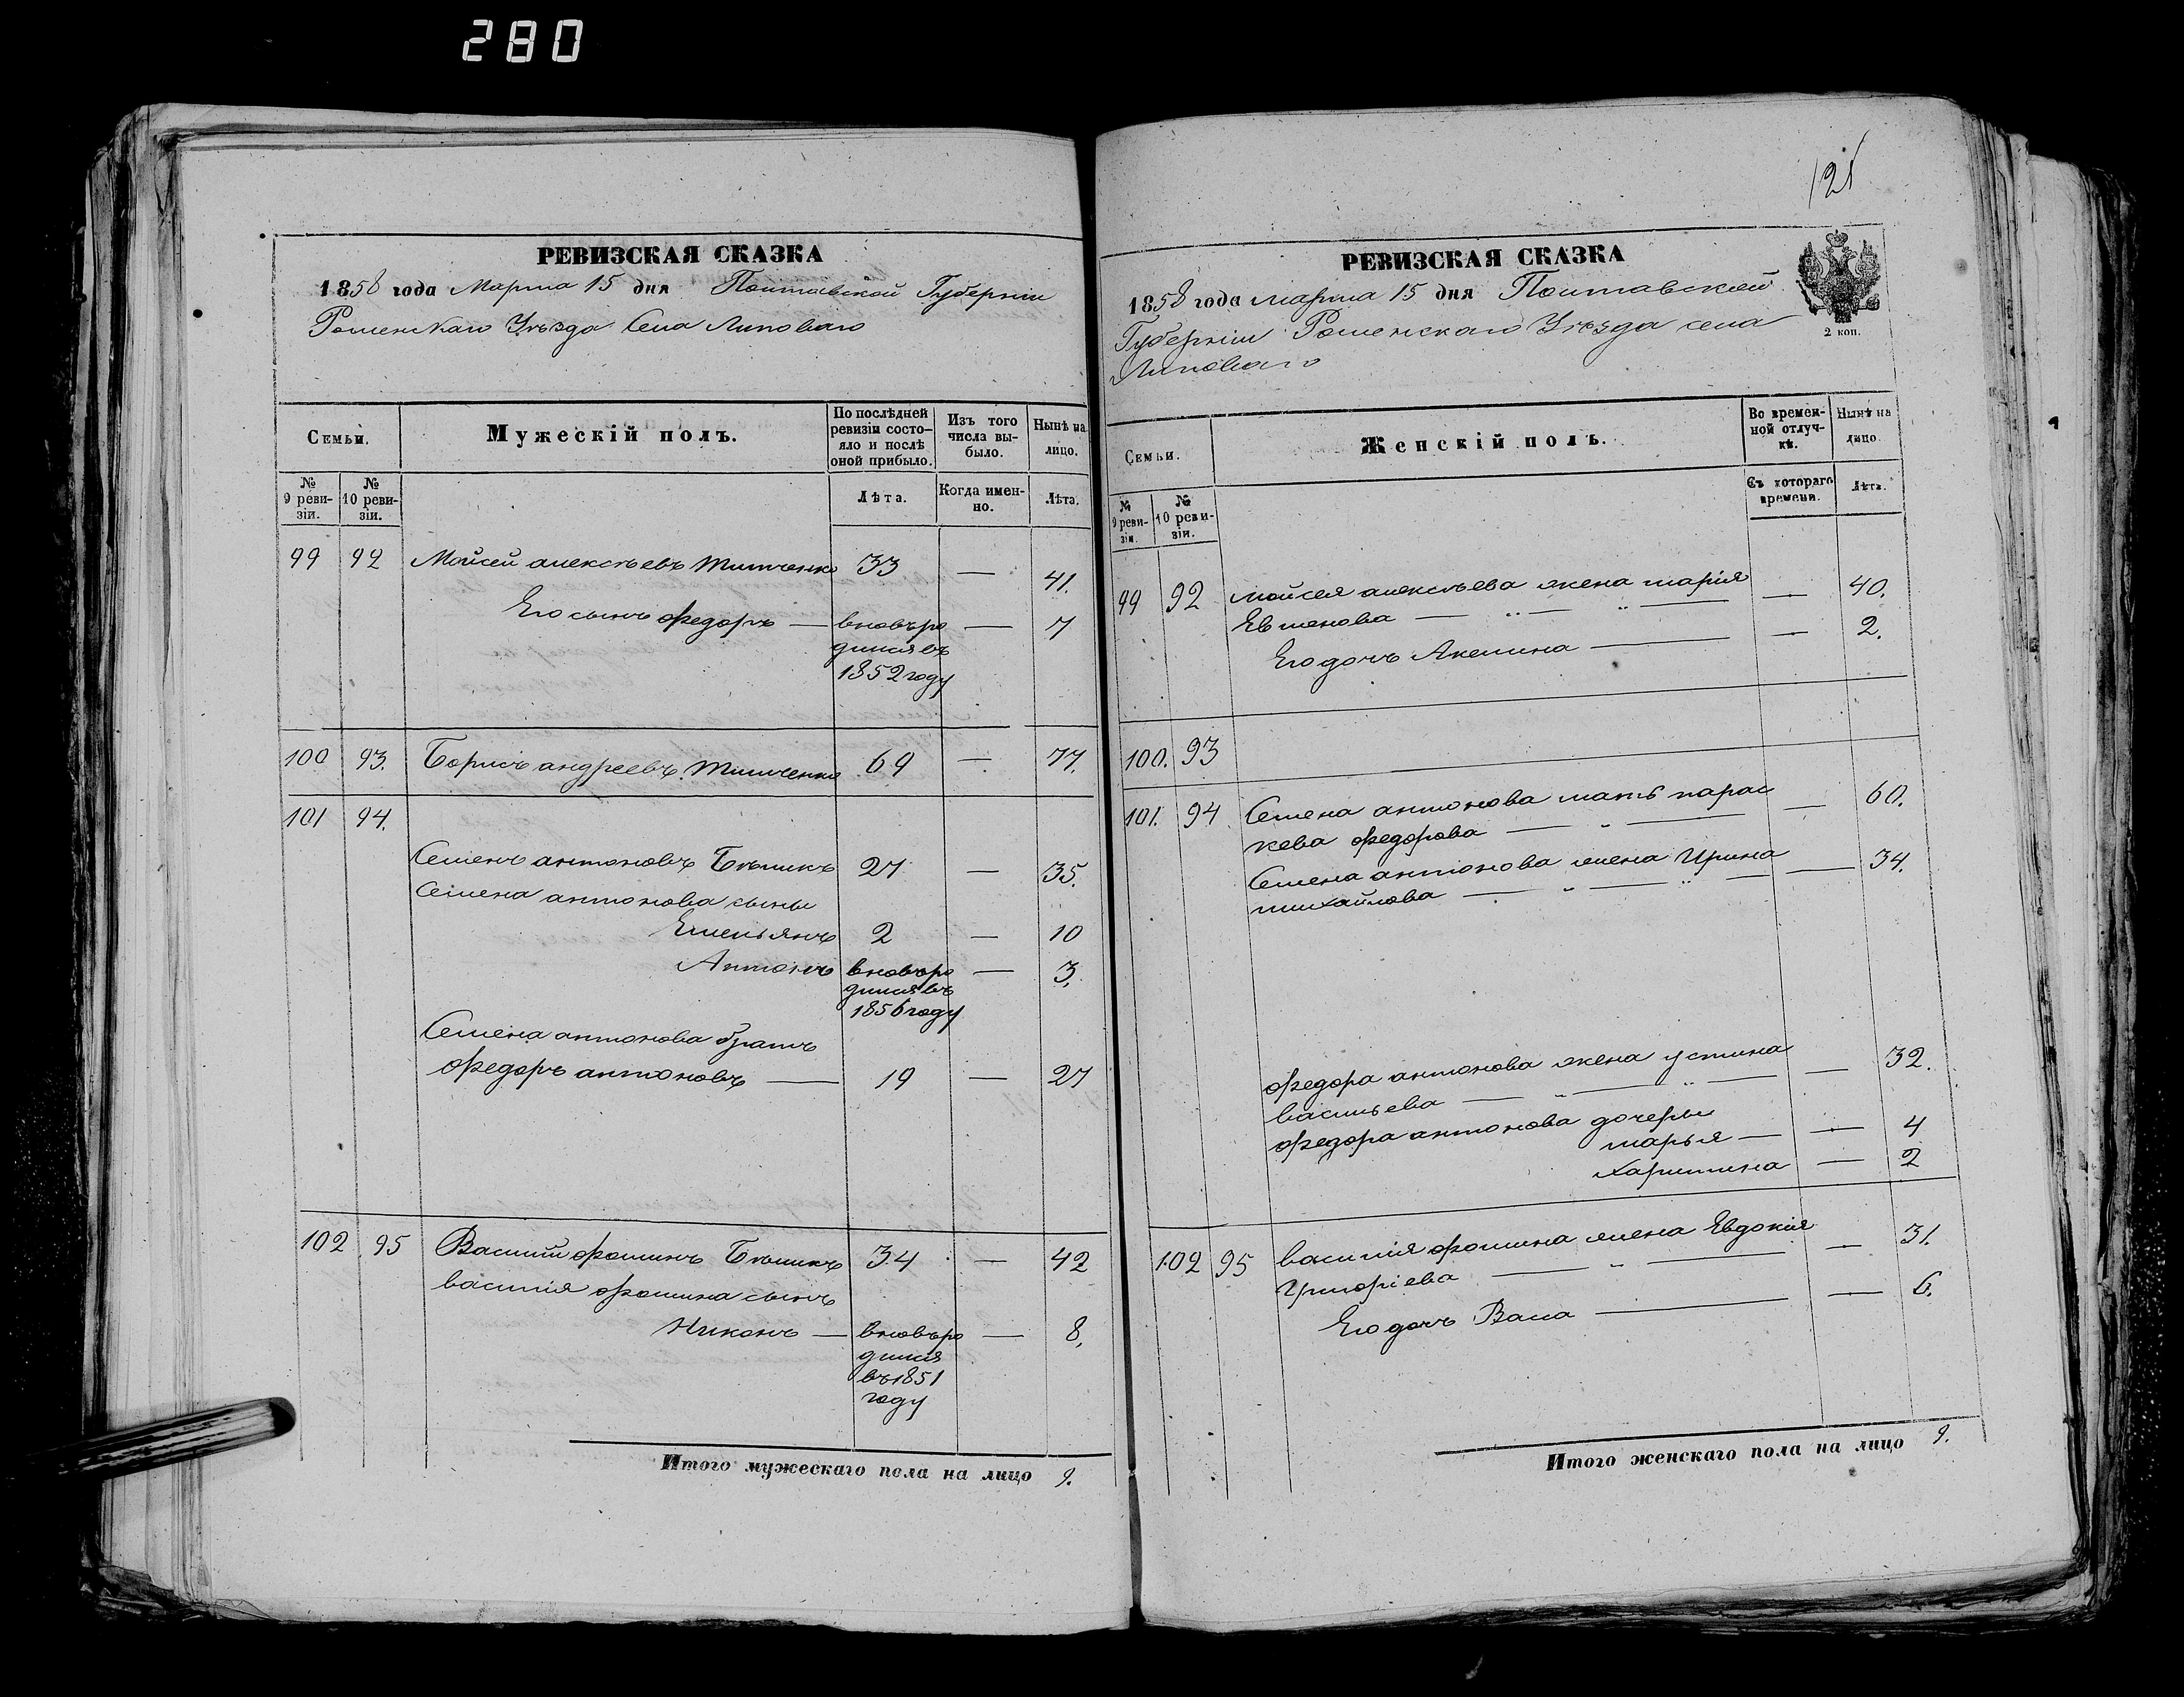 280
РЕВИЗСКАЯ СКАЗКА
1858 года Марта 15 дня Полтавской Губерніи
Роменскаго Уѣзда Села Липоваго
Семьи.
Мужескій полъ.
По послѣдней ревизіи состояло и послѣ оной прибыло.
Изъ того числа выбыло.
Нынѣ на лицо.
№ 9 ревизіи.
№ 10 ревизіи.
Лѣта.
Когда именно.
Лѣта.
99 92 Мойсей алексѣевъ Тимченко 33 — 41.
Его сынъ федоръ — вновь ро — 7
дился въ
1852 году
100 93. Борисъ андреевъ Тимченко 69 — 77.
101 94.
Семенъ антоновъ Бѣликъ 27 — 35.
Семена антонова сыны
Емельянъ 2 — 10
Антонъ вновь ро — 3.
дился въ
1856 году
Семена антонова братъ
федоръ антоновъ — 19 — 27
102 95 Василій фоминъ Бѣликъ 34 — 42
василія фомина сынъ
Никонъ — вновь ро — 8.
дился
въ 1851
году
Итого мужескаго пола на лицо 9.
121
РЕВИЗСКАЯ СКАЗКА
1858 года марта 15 дня Полтавской
Губерніи Роменскаго Уѣзда села
Липоваго
2 коп.
Семьи.
Женскій полъ.
Во временной отлучкѣ.
Нынѣ на лицо.
№ 9 ревизіи.
№ 10 ревизіи.
Съ котораго времени.
Лѣта.
99 92 мойсея алексѣева жена марія
— 40.
Его дочь Акелина — — 2.
100. 93
101. 94 Семена антонова мать парас
кева федорова — — 60.
Семена антонова жена Ирина
михайлова — — 34.
федора антонова жена устина
васильева — — 32.
федора антонова дочеры
марья — — 4
Харитина — 2
102 95 василія фомина жена Евдокія
Григоріева — — 31.
Его дочь Васа — — 6.
Итого женскаго пола на лицо 9.